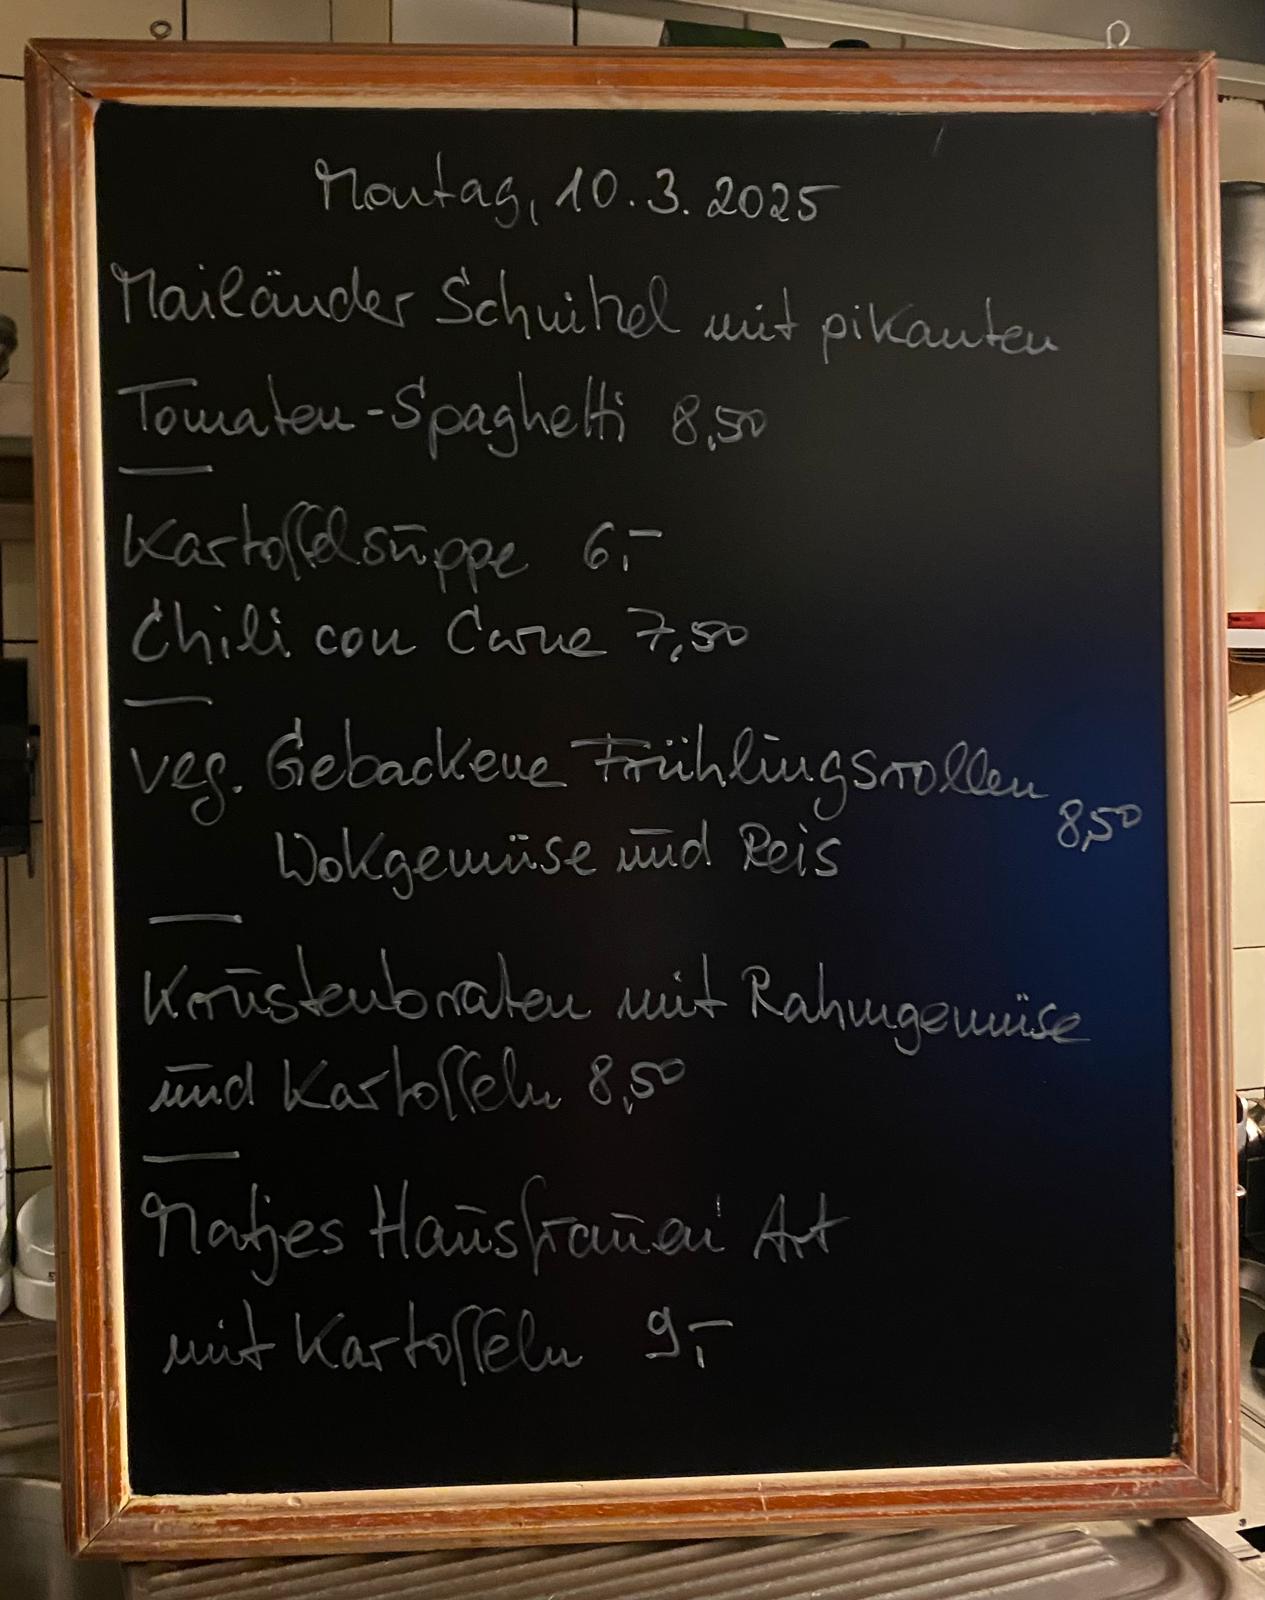 Montag, 10.3.2025
Mailänder Schnitzel mit pikanten
Tomaten-Spaghetti 8,50
Kartoffelsuppe 6,-
Chili con Carne 7,50
veg. Gebackene Frühlingsrollen
8,50
Wokgemüse und Reis
Krustenbraten mit Rahmgemüse
und Kartoffeln 8,50
Matjes Hausfrauen' Art
mit Kartoffeln 9,-